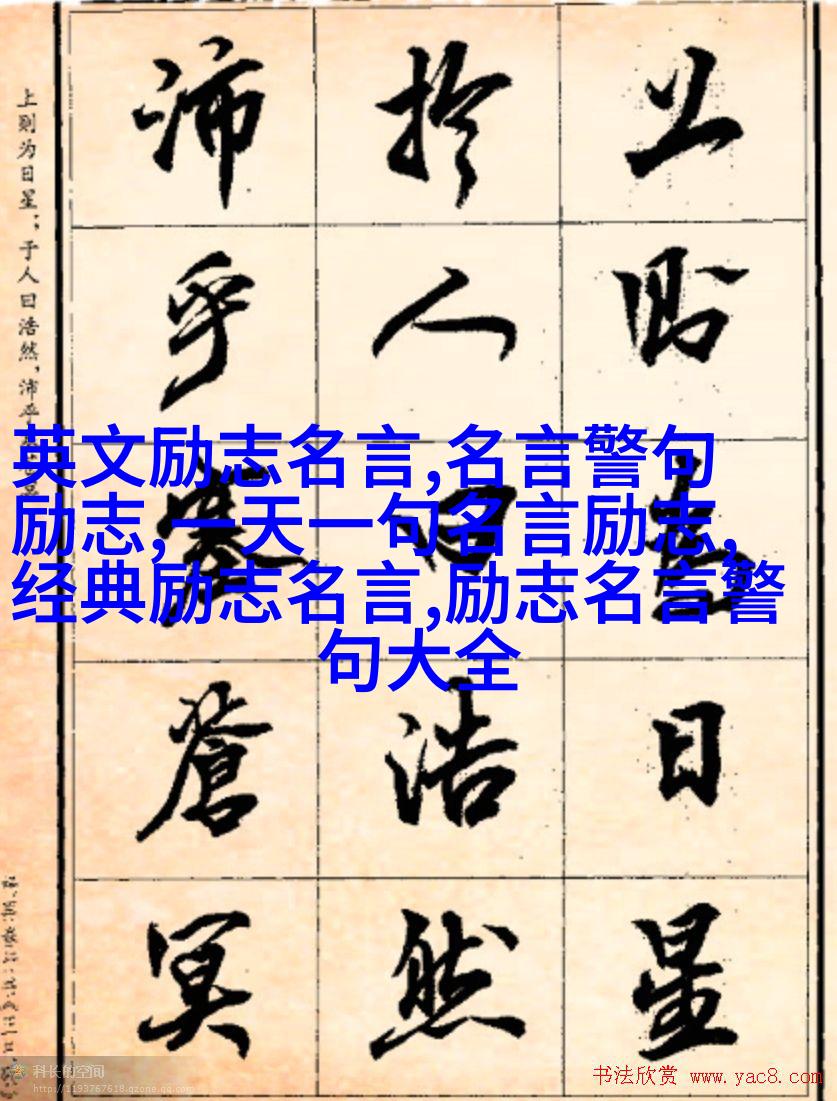 上则为日星；于人曰浩然，沛乎
上则为日星
於人曰浩然
沛乎塞苍冥
英文励志名言,名言警句
励志,一天一句名言励志,
经典励志名言,励志名言警
句大全
科长的空间
http://1193767618.qzone.qq.com
书法欣赏 www.yac8.com